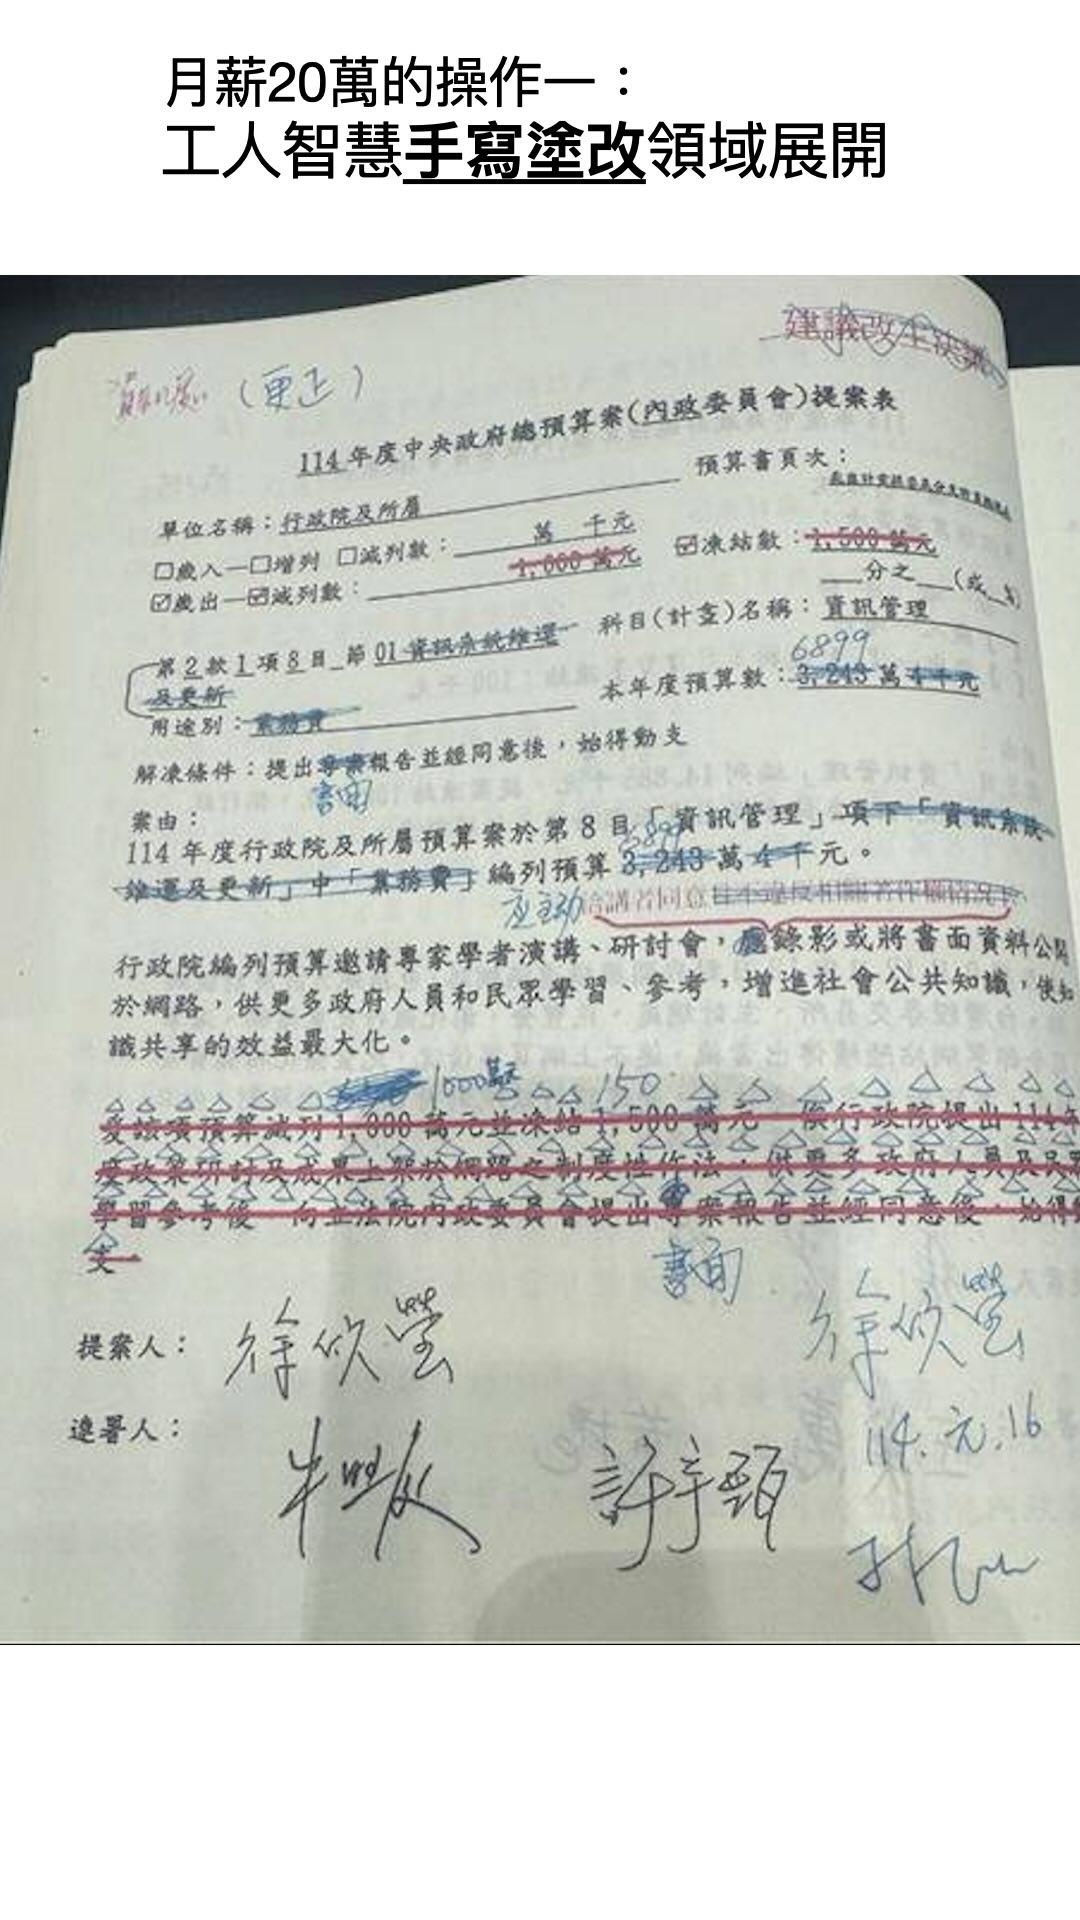 月薪20萬的操作一：
工人智慧手寫塗改領域展開
建議改主決議
（更正）
114年度中央政府總預算案(內政委員會)提案表
預算書頁次：
單位名稱：行政院及所屬
□歲入—□增列 □減列數：　萬　千元
☑凍結數：1,500萬元
☑歲出—☑減列數：1,000萬元
__分之__(或__%)
第2款1項8目_節01資訊系統維運及更新
科目(計畫)名稱：資訊管理
6899
本年度預算數：3,243萬4千元
用途別：業務費
解凍條件：提出專案報告並經同意後，始得動支
書面
案由：
6899
114年度行政院及所屬預算案於第8目「資訊管理」項下「資訊系統
維運及更新」中「業務費」編列預算3,243萬4千元。
應主動洽講者同意且不違反相關著作權情況下
行政院編列預算邀請專家學者演講、研討會，應錄影或將書面資料公開
於網路，供更多政府人員和民眾學習、參考，增進社會公共知識，使知
識共享的效益最大化。
1000萬元 150
爰該項預算減列1,000萬元並凍結1,500萬元，俟行政院提出114年
度政策研討及成果上架於網路之制度性作法，供更多政府人員及民眾
學習參考後，向立法院內政委員會提出專案報告並經同意後，始得動
支。
書面
提案人：徐欣瑩 徐欣瑩
連署人： 許宇甄
114.元.16